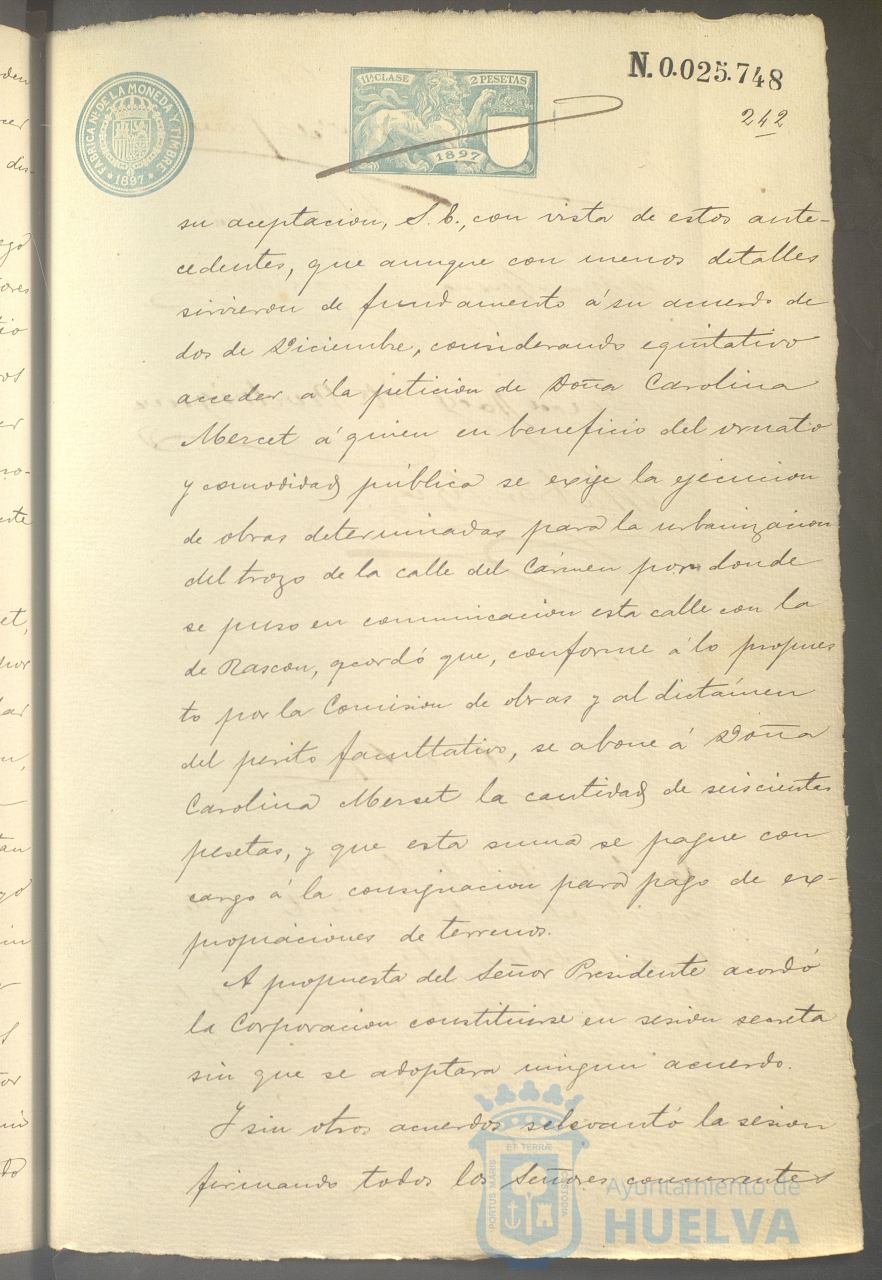 FABRICA NL. DE LA MONEDA Y TIMBRE
* 1897 *
11ª CLASE 2 PESETAS
1897
N. 0.025.748
242
su aceptacion, S. E., con vista de estos ante-
cedentes, que aunque con menos detalles
sirvieron de fundamento á su acuerdo de
dos de Diciembre, considerando equitativo
acceder á la peticion de Doña Carolina
Mercet á quien en beneficio del ornato
y comodidad pública se exije la ejecucion
de obras determinadas para la urbanizacion
del trozo de la calle del Cármen por donde
se puso en comunicacion esta calle con la
de Rascon, acordó que, conforme á lo propues
to por la Comision de obras y al dictámen
del perito facultativo, se abone á Doña
Carolina Merset la cantidad de seiscientas
pesetas, y que esta suma se pague con
cargo á la consignacion para pago de ex-
propiaciones de terrenos.
A propuesta del Señor Presidente acordó
la Corporacion constituirse en sesion secreta
sin que se adoptara ningun acuerdo.
Y sin otros acuerdos se levantó la sesion
firmando todos los Señores concurrentes
PORTUS MARIS ET TERRÆ CUSTODIA
Ayuntamiento de
HUELVA